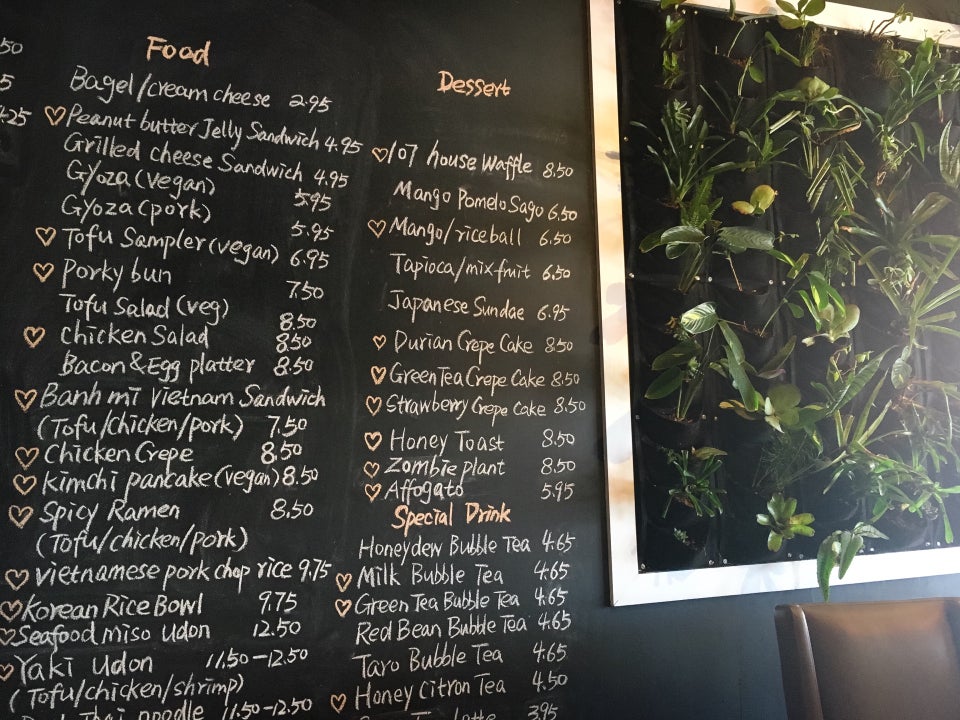 50
5
4.25
Food
Bagel/cream cheese 2.95
♡Peanut butter Jelly Sandwich 4.95
Grilled cheese Sandwich 4.95
Gyoza (vegan) 5.95
Gyoza (pork) 5.95
♡ Tofu Sampler (vegan) 6.95
♡ Porky bun 7.50
Tofu Salad (veg) 8.50
♡ Chicken Salad 8.50
Bacon & Egg platter 8.50
♡ Banh mī Vietnam Sandwich
(Tofu/chicken/pork) 7.50
♡ Chicken Crepe 8.50
♡ kimchi pancake (vegan) 8.50
♡ Spicy Ramen 8.50
(Tofu/chicken/pork)
♡ Vietnamese pork chop rice 9.75
♡ Korean Rice Bowl 9.75
♡ Seafood miso udon 12.50
♡ Yaki udon 11.50-12.50
(Tofu/chicken/shrimp)
Thai noodle 11.50-12.50
Dessert
♡ 107 house Waffle 8.50
Mango Pomelo Sago 6.50
♡ Mango/riceball 6.50
Tapioca/mix fruit 6.50
Japanese Sundae 6.95
♡ Durian Crepe Cake 8.50
♡ Green Tea Crepe Cake 8.50
♡ Strawberry Crepe Cake 8.50
♡ Honey Toast 8.50
♡ Zombie plant 8.50
♡ Affogato 5.95
Special Drink
Honeydew Bubble Tea 4.65
♡ Milk Bubble Tea 4.65
♡ Green Tea Bubble Tea 4.65
Red Bean Bubble Tea 4.65
Taro Bubble Tea 4.65
♡ Honey Citron Tea 4.50
latte 3.95